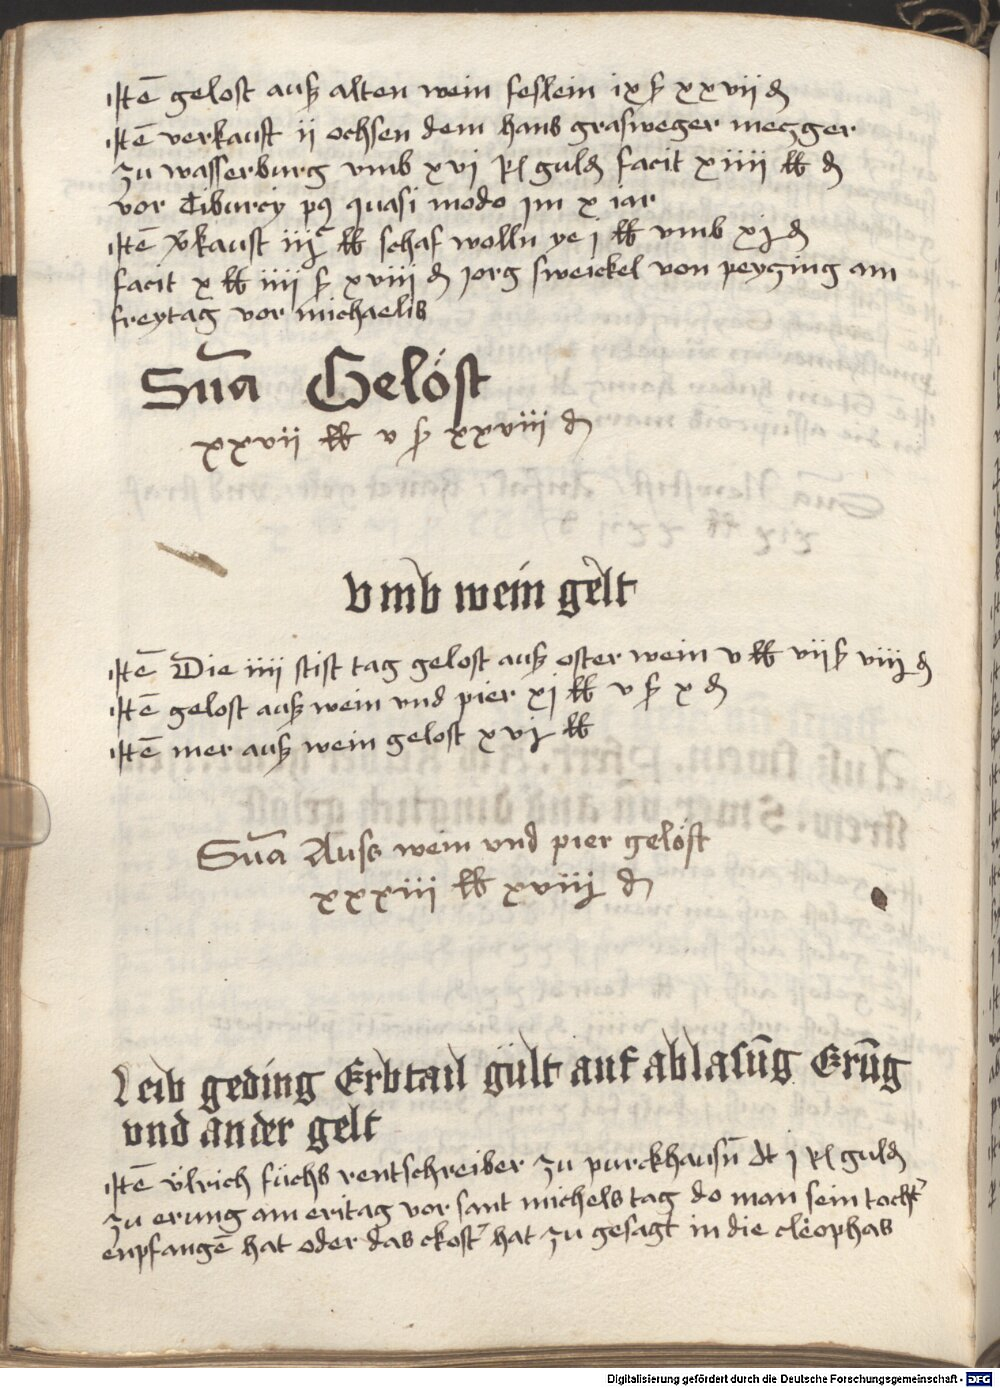 Itē gelost auß alten wein feslein ix ß xxvii d
Itē verkauft ii ochsen dem hans grasweger meczger
zu wasserburg vmb xvi R guld facit xiiii lb d
vor Tiburcy pꝯ quasi modo im x iar
Itē vkauft lb schaf wolln ye j lb vmb xj d
facit x lb iiii ß xviii d jorg sweickel von peyging am
freytag vor michaelis
Sūa Gelöst
xxvii lb v ß xxviii d
vmb wein gelt
Itē Die iiii stift tag gelost auß oster wein v lb vii ß viij d
Itē gelost auß wein vnd pier xj lb v ß x d
Itē mer auß wein gelost xvj lb
Sūa Auss wein vnd pier gelöst
xxxiii lb xviij d
Leib geding Erbtail gült auf ablasūg Erūg
vnd ander gelt
Itē vlrich füchs rentschreiber zu purckhausn̄ dt j R guld
zu erung am eritag vor sant michels tag do man sein tocht
enpfangē hat oder das ckost hat zu gesagt in die cleophas
Digitalisierung gefördert durch die Deutsche Forschungsgemeinschaft - DFG